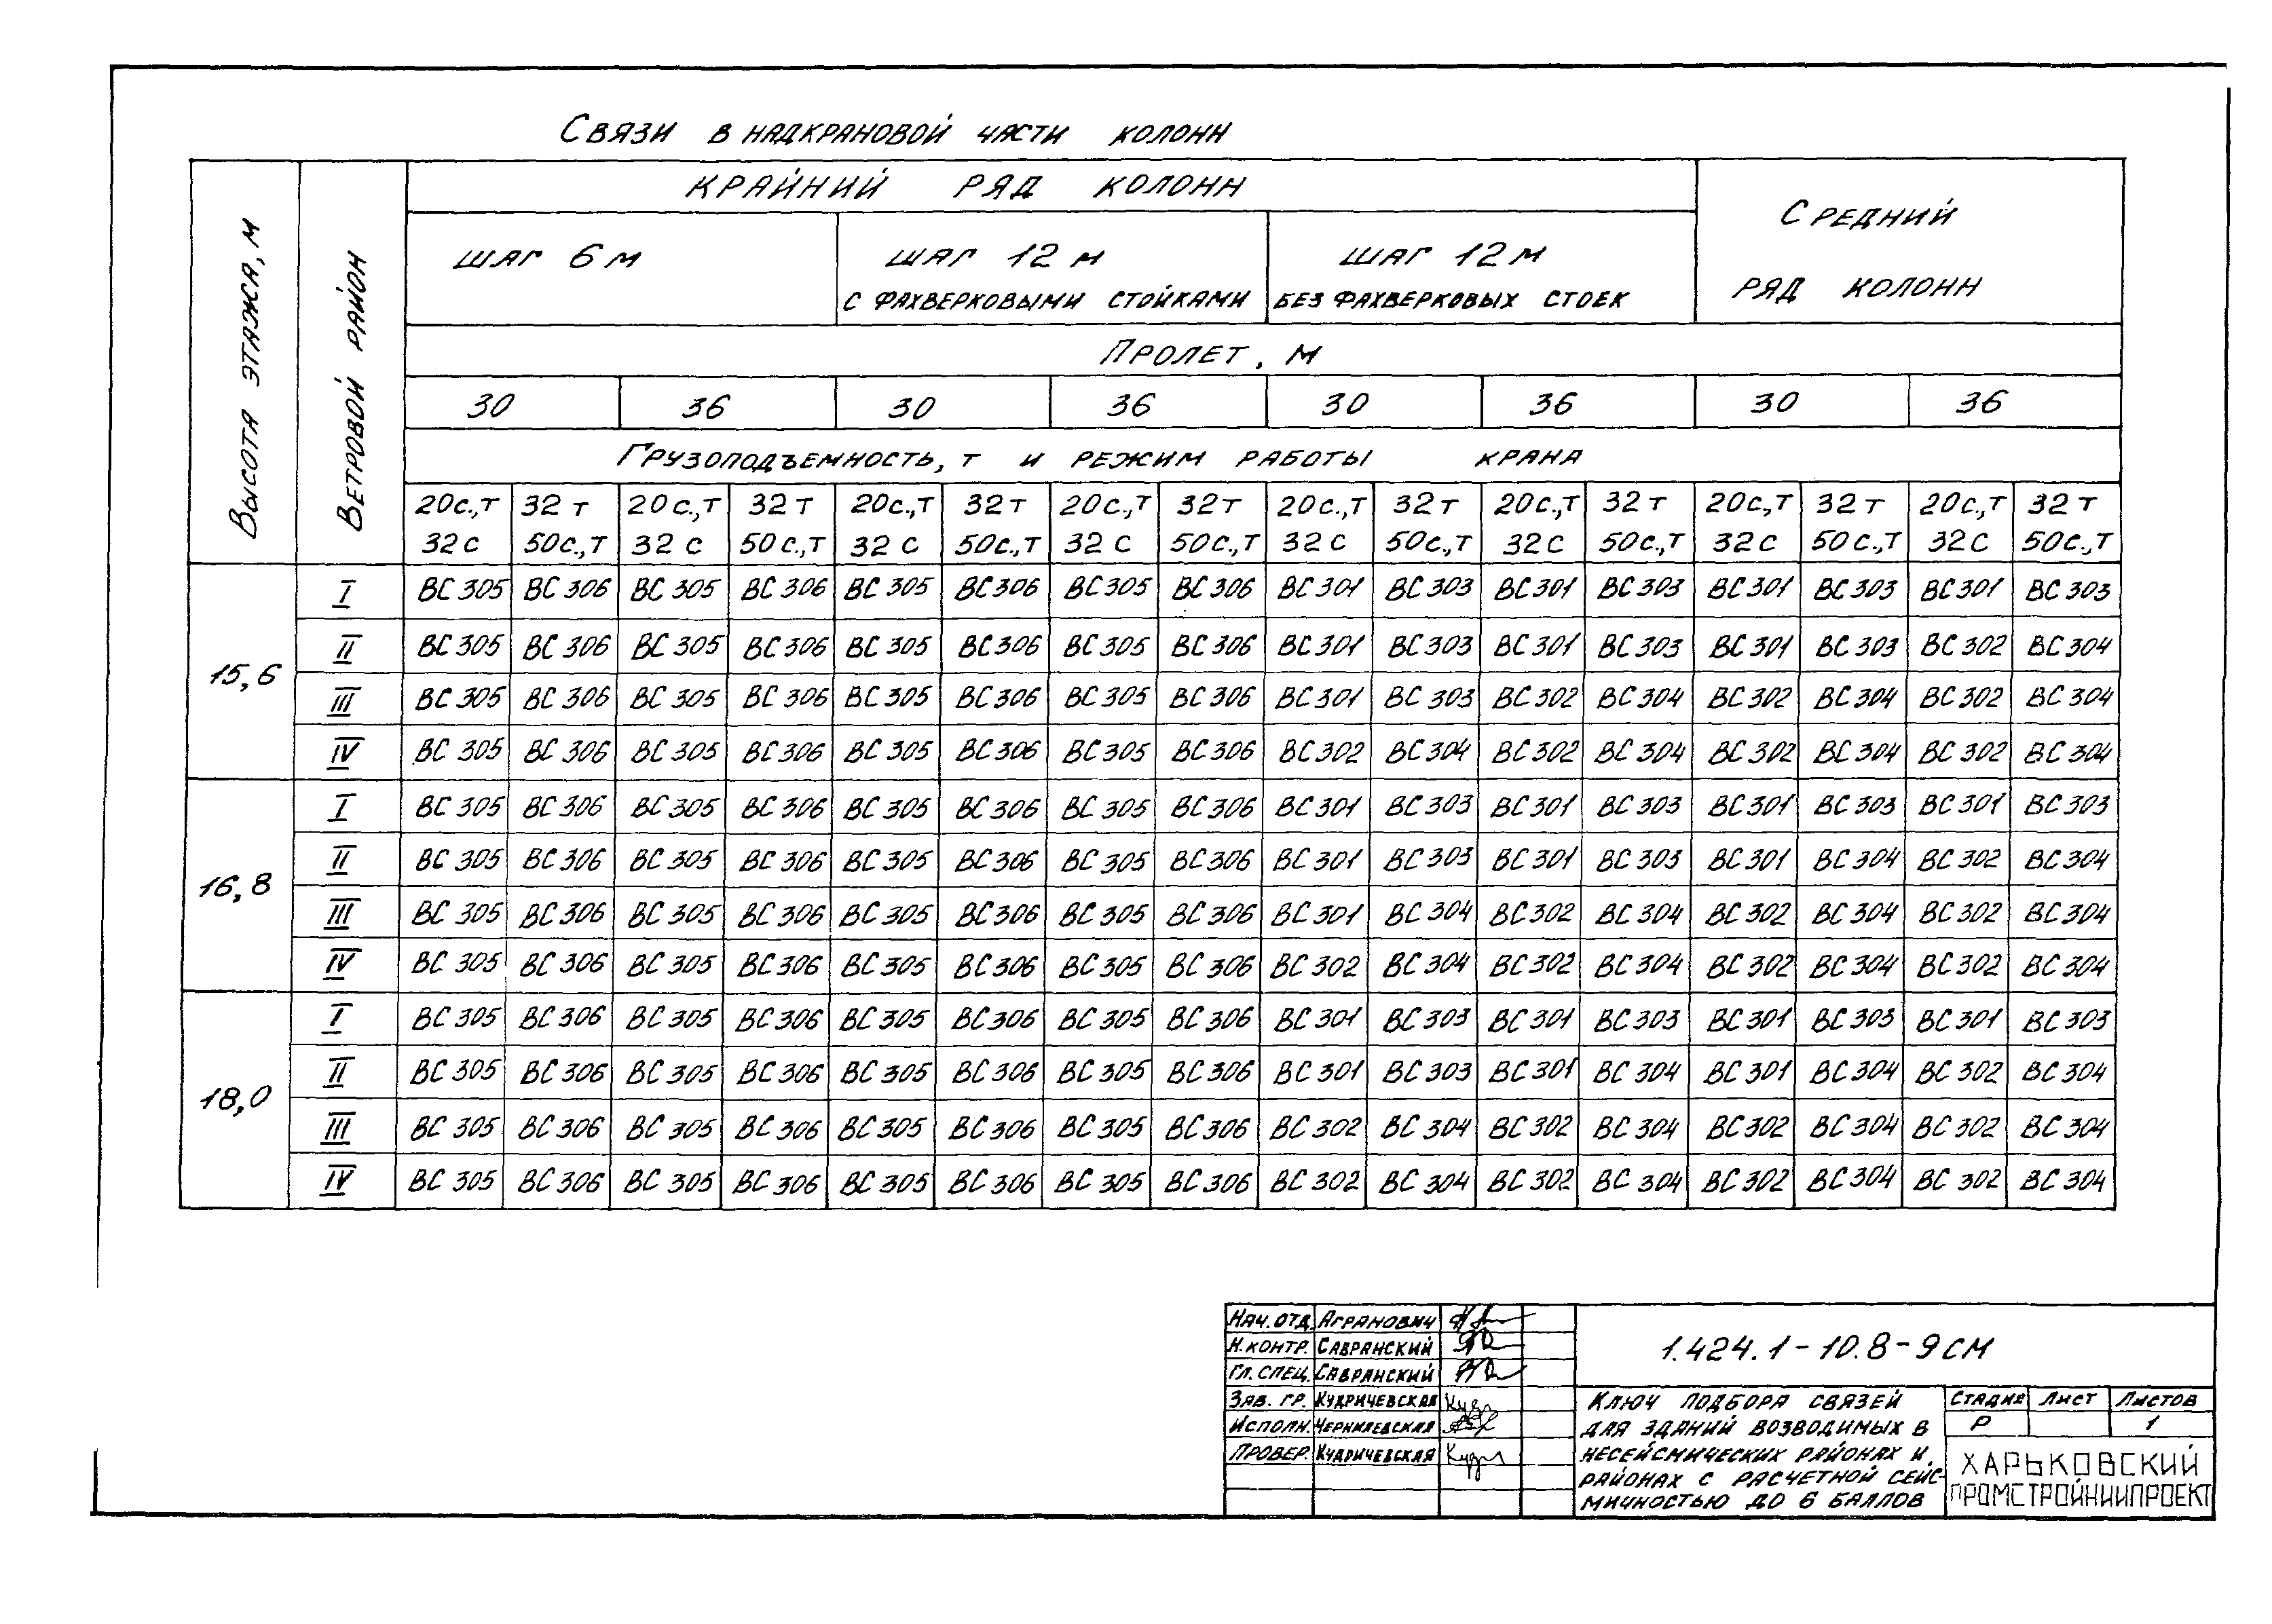 Связи в надкрановой части колонн
Высота этажа, м
Ветровой район
Крайний ряд колонн
Средний ряд колонн
шаг 6 м
шаг 12 м с фахверковыми стойками
шаг 12 м без фахверковых стоек
Пролет, м
30 36 30 36 30 36 30 36
Грузоподъемность, т и режим работы крана
20с.,т 32 т 20с.,т 32 т 20с.,т 32 т 20с.,т 32 т 20с.,т 32 т 20с.,т 32 т 20с.,т 32 т 20с.,т 32 т
32 с 50с.,т 32 с 50с.,т 32 с 50с.,т 32 с 50с.,т 32 с 50с.,т 32 с 50с.,т 32 с 50с.,т 32 с 50с.,т
15,6
I ВС 305 ВС 306 ВС 305 ВС 306 ВС 305 ВС 306 ВС 305 ВС 306 ВС 301 ВС 303 ВС 301 ВС 303 ВС 301 ВС 303 ВС 301 ВС 303
II ВС 305 ВС 306 ВС 305 ВС 306 ВС 305 ВС 306 ВС 305 ВС 306 ВС 301 ВС 303 ВС 301 ВС 303 ВС 301 ВС 303 ВС 302 ВС 304
III ВС 305 ВС 306 ВС 305 ВС 306 ВС 305 ВС 306 ВС 305 ВС 306 ВС 301 ВС 303 ВС 302 ВС 304 ВС 302 ВС 304 ВС 302 ВС 304
IV ВС 305 ВС 306 ВС 305 ВС 306 ВС 305 ВС 306 ВС 305 ВС 306 ВС 302 ВС 304 ВС 302 ВС 304 ВС 302 ВС 304 ВС 302 ВС 304
16,8
I ВС 305 ВС 306 ВС 305 ВС 306 ВС 305 ВС 306 ВС 305 ВС 306 ВС 301 ВС 303 ВС 301 ВС 303 ВС 301 ВС 303 ВС 301 ВС 303
II ВС 305 ВС 306 ВС 305 ВС 306 ВС 305 ВС 306 ВС 305 ВС 306 ВС 301 ВС 303 ВС 301 ВС 303 ВС 301 ВС 304 ВС 302 ВС 304
III ВС 305 ВС 306 ВС 305 ВС 306 ВС 305 ВС 306 ВС 305 ВС 306 ВС 301 ВС 304 ВС 302 ВС 304 ВС 302 ВС 304 ВС 302 ВС 304
IV ВС 305 ВС 306 ВС 305 ВС 306 ВС 305 ВС 306 ВС 305 ВС 306 ВС 302 ВС 304 ВС 302 ВС 304 ВС 302 ВС 304 ВС 302 ВС 304
18,0
I ВС 305 ВС 306 ВС 305 ВС 306 ВС 305 ВС 306 ВС 305 ВС 306 ВС 301 ВС 303 ВС 301 ВС 303 ВС 301 ВС 303 ВС 301 ВС 303
II ВС 305 ВС 306 ВС 305 ВС 306 ВС 305 ВС 306 ВС 305 ВС 306 ВС 301 ВС 303 ВС 301 ВС 304 ВС 301 ВС 304 ВС 302 ВС 304
III ВС 305 ВС 306 ВС 305 ВС 306 ВС 305 ВС 306 ВС 305 ВС 306 ВС 302 ВС 304 ВС 302 ВС 304 ВС 302 ВС 304 ВС 302 ВС 304
IV ВС 305 ВС 306 ВС 305 ВС 306 ВС 305 ВС 306 ВС 305 ВС 306 ВС 302 ВС 304 ВС 302 ВС 304 ВС 302 ВС 304 ВС 302 ВС 304
Нач. отд. Агранович
Н. контр. Савранский
Гл. спец. Савранский
Зав. гр. Кудричевская
Исполн. Чернилевская
Провер. Кудричевская
1.424.1-10.8-9СМ
Ключ подбора связей
для зданий возводимых в
несейсмических районах и
районах с расчетной сейс-
мичностью до 6 баллов
Стадия Лист Листов
Р 1
ХАРЬКОВСКИЙ
ПРОМСТРОЙНИИПРОЕКТ